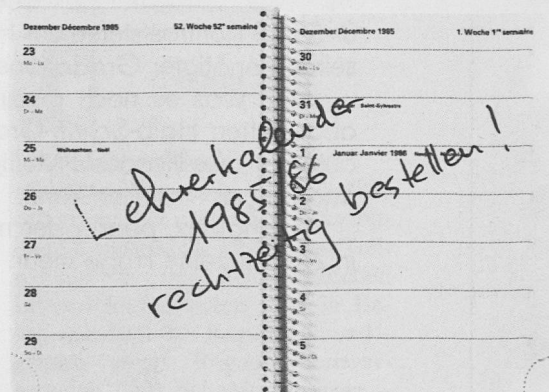 Dezember Décembre 1985
52. Woche 52e semaine
23
Mo – Lu
24
Di – Ma
25
Weihnachten Noël
Mi – Me
26
Do – Je
27
Fr – Ve
28
Sa
29
So – Di
Dezember Décembre 1985
1. Woche 1re semaine
30
Mo – Lu
31
Saint-Sylvestre
Di – Ma
1
Januar Janvier 1986
2
3
4
5
So – Di
Lehrerkalender
1985/86
rechtzeitig bestellen!